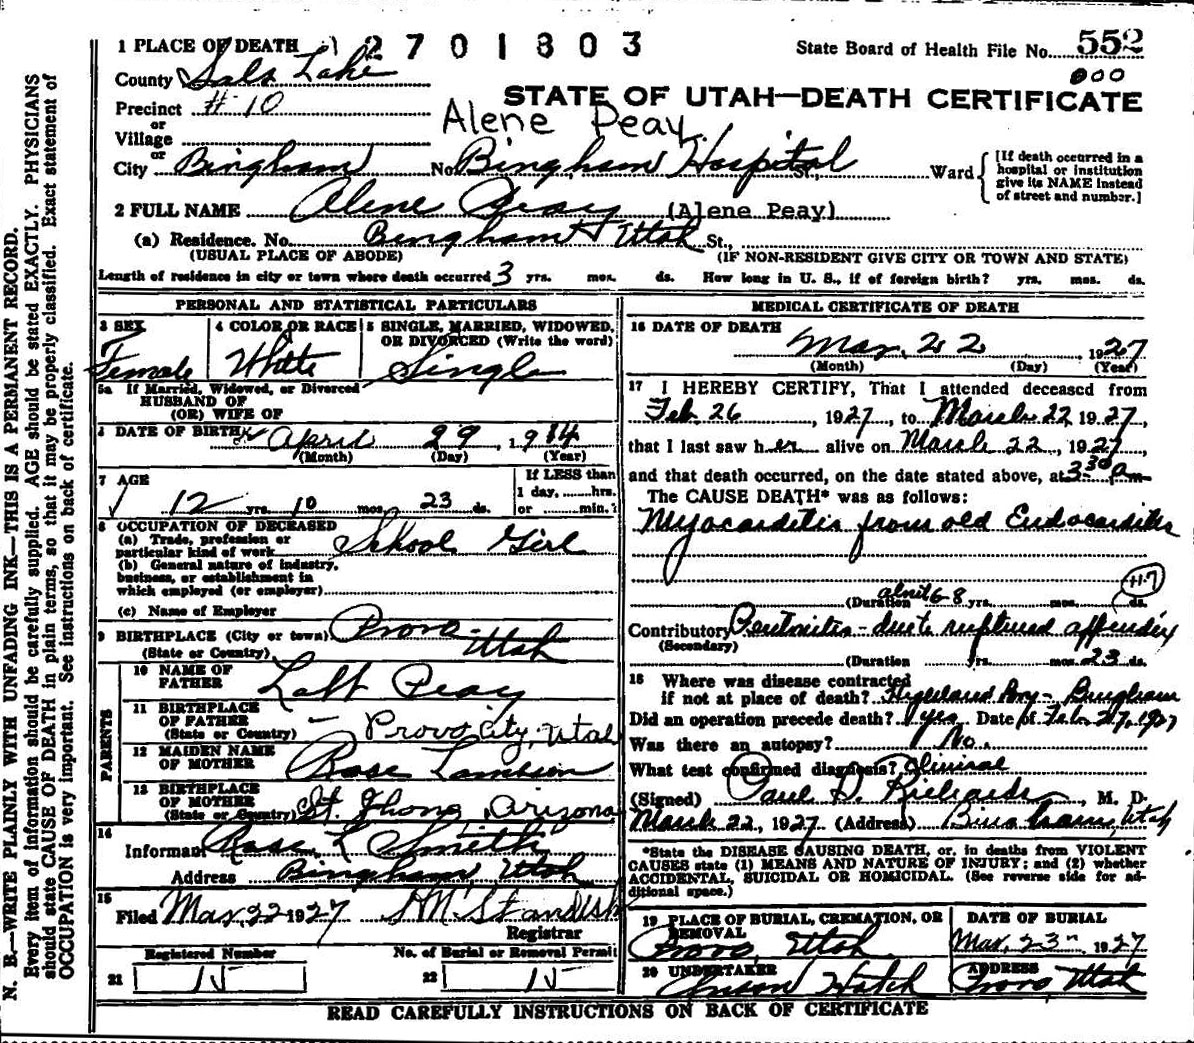 1 PLACE OF DEATH 2701803 State Board of Health File No. 552
County Salt Lake 000
STATE OF UTAH—DEATH CERTIFICATE
Precinct #10
or
Village
Alene Peay
or
City Bingham No. Bingham Hospital St., Ward
[If death occurred in a hospital or institution give its NAME instead of street and number.]
2 FULL NAME Alene Peay (Alene Peay)
(a) Residence. No. Bingham Utah St.,
(USUAL PLACE OF ABODE) (IF NON-RESIDENT GIVE CITY OR TOWN AND STATE)
Length of residence in city or town where death occurred 3 yrs. mos. ds. How long in U. S., if of foreign birth? yrs. mos. ds.
PERSONAL AND STATISTICAL PARTICULARS
3 SEX Female
4 COLOR OR RACE White
5 SINGLE, MARRIED, WIDOWED, OR DIVORCED (Write the word) Single
5a If Married, Widowed, or Divorced
HUSBAND OF
(OR) WIFE OF
DATE OF BIRTH April 29 1914
(Month) (Day) (Year)
7 AGE 12 yrs. 10 mos. 23 ds.
If LESS than
1 day, hrs.
or min.?
8 OCCUPATION OF DECEASED
(a) Trade, profession or
particular kind of work School Girl
(b) General nature of industry,
business, or establishment in
which employed (or employer)
(c) Name of Employer
9 BIRTHPLACE (City or town) Provo
(State or Country) Utah
PARENTS
10 NAME OF
FATHER Peay
11 BIRTHPLACE
OF FATHER
(State or Country) — Provo City, Utah
12 MAIDEN NAME
OF MOTHER Rose
13 BIRTHPLACE
OF MOTHER
(State or Country) St. Johns, Arizona
14
Informant Rose L Smith
Address Bingham Utah
15
Filed Mar. 22 1927 Standish
Registrar
Registered Number No. of Burial or Removal Permit
21 15 22 15
MEDICAL CERTIFICATE OF DEATH
16 DATE OF DEATH
Mar. 22, 1927
(Month) (Day) (Year)
17 I HEREBY CERTIFY, That I attended deceased from
Feb. 26, 1927, to March 22, 1927,
that I last saw her alive on March 22, 1927,
and that death occurred, on the date stated above, at 3:30 a m
The CAUSE DEATH* was as follows:
Myocarditis from old Endocarditis
(Duration 6-8 yrs. mos. ds.
Contributory Peritonitis - due to ruptured appendix
(Secondary)
(Duration yrs. mos. 23 ds.
18 Where was disease contracted
if not at place of death? Highland Boy - Bingham
Did an operation precede death? Yes Date of Feb. 27, 1927
Was there an autopsy? No.
What test confirmed diagnosis? Clinical
(Signed) Paul S. Richards, M. D.
March 22, 1927 (Address) Bingham, Utah
*State the DISEASE CAUSING DEATH, or, in deaths from VIOLENT
CAUSES state (1) MEANS AND NATURE OF INJURY; and (2) whether
ACCIDENTAL, SUICIDAL OR HOMICIDAL. (See reverse side for ad-
ditional space.)
19 PLACE OF BURIAL, CREMATION, OR
REMOVAL
Provo, Utah
DATE OF BURIAL
Mar. 23 1927
20 UNDERTAKER
Hatch
ADDRESS
Provo, Utah
READ CAREFULLY INSTRUCTIONS ON BACK OF CERTIFICATE
N. B.—WRITE PLAINLY WITH UNFADING INK—THIS IS A PERMANENT RECORD.
Every item of information should be carefully supplied. AGE should be stated EXACTLY. PHYSICIANS
should state CAUSE OF DEATH in plain terms, so that it may be properly classified. Exact statement of
OCCUPATION is very important. See instructions on back of certificate.